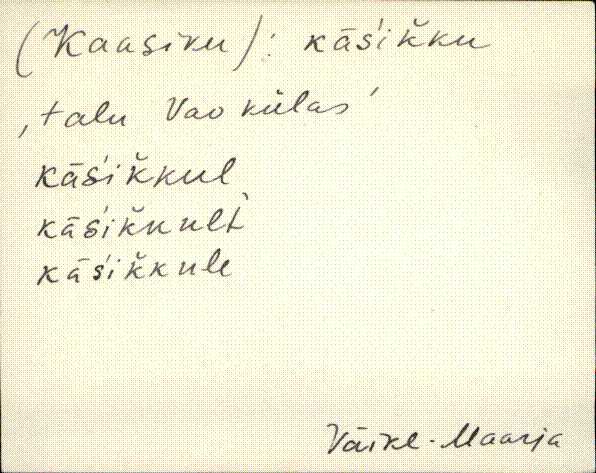 (Kaasiku): kāśik̆ku
‚talu Vao külas’
kāśik̆kul
kāśik̆kult̀
kāśik̆kule
Väike-Maarja